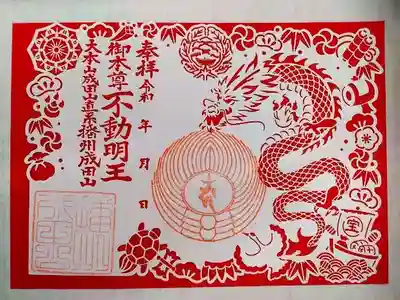 奉拝 令和 年 月 日
御本尊 不動明王
大本山成田山直系播州成田山
宝